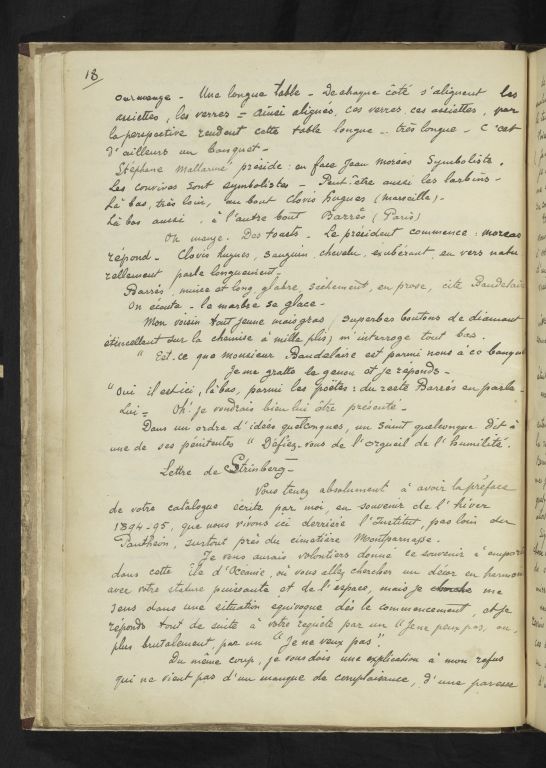 18
On mange - Une longue table - De chaque côté s'alignent les
assiettes, les verres = Ainsi alignés, ces verres, ces assiettes, par
la perspective rendent cette table longue - très longue - C'est
d'ailleurs un banquet -
Stéphane Mallarmé préside : en face Jean Moreas Symboliste.
Les convives sont symbolistes - Peut-être aussi les larbins -
Là bas, très loin, au bout Clovis Hugues (Marseille) -
Là bas aussi, à l'autre bout Barrès (Paris)
On mange. Des toasts. Le président commence : moreas
répond - Clovis hugues, Sanguin, chevelu, exubérant, en vers natu
rellement parle longuement -
Barrès, mince et long, glabre, sèchement, en prose, cite Baudelaire
On écoute - le marbre se glace -
Mon voisin tout jeune mais gras, (superbes boutons de diamant
étincellent sur la chemise à mille plis) m'interroge tout bas.
" Est-ce que Monsieur Baudelaire est parmi nous à ce banquet
Je me gratte le genou et je réponds -
" Oui il est ici, là bas, parmi les poëtes : du reste Barrès en parle -
Lui = Oh ! je voudrais bien lui être présenté -
Dans un ordre d'idées quelconques, un saint quelconque dit à
une de ses pénitentes " Défiez-vous de l'orgueil de l'humilité.
Lettre de Strinberg -
Vous tenez absolument à avoir la préface
de votre catalogue écrite par moi, en souvenir de l'hiver
1894-95, que nous vivons ici derrière l'Institut, pas loin du
Panthéon, surtout près du cimetière Montparnasse.
Je vous aurais volontiers donné ce souvenir à emporter
dans cette île d'Océanie, où vous allez chercher un décor en harmonie
avec votre stature puissante et de l'espace, mais je me
sens dans une situation équivoque dès le commencement, et je
réponds tout de suite à votre requête par un "Je ne peux pas, ou,
plus brutalement, par un "Je ne veux pas".
Du même coup, je vous dois une explication à mon refus
qui ne vient pas d'un manque de complaisance, d'une paresse